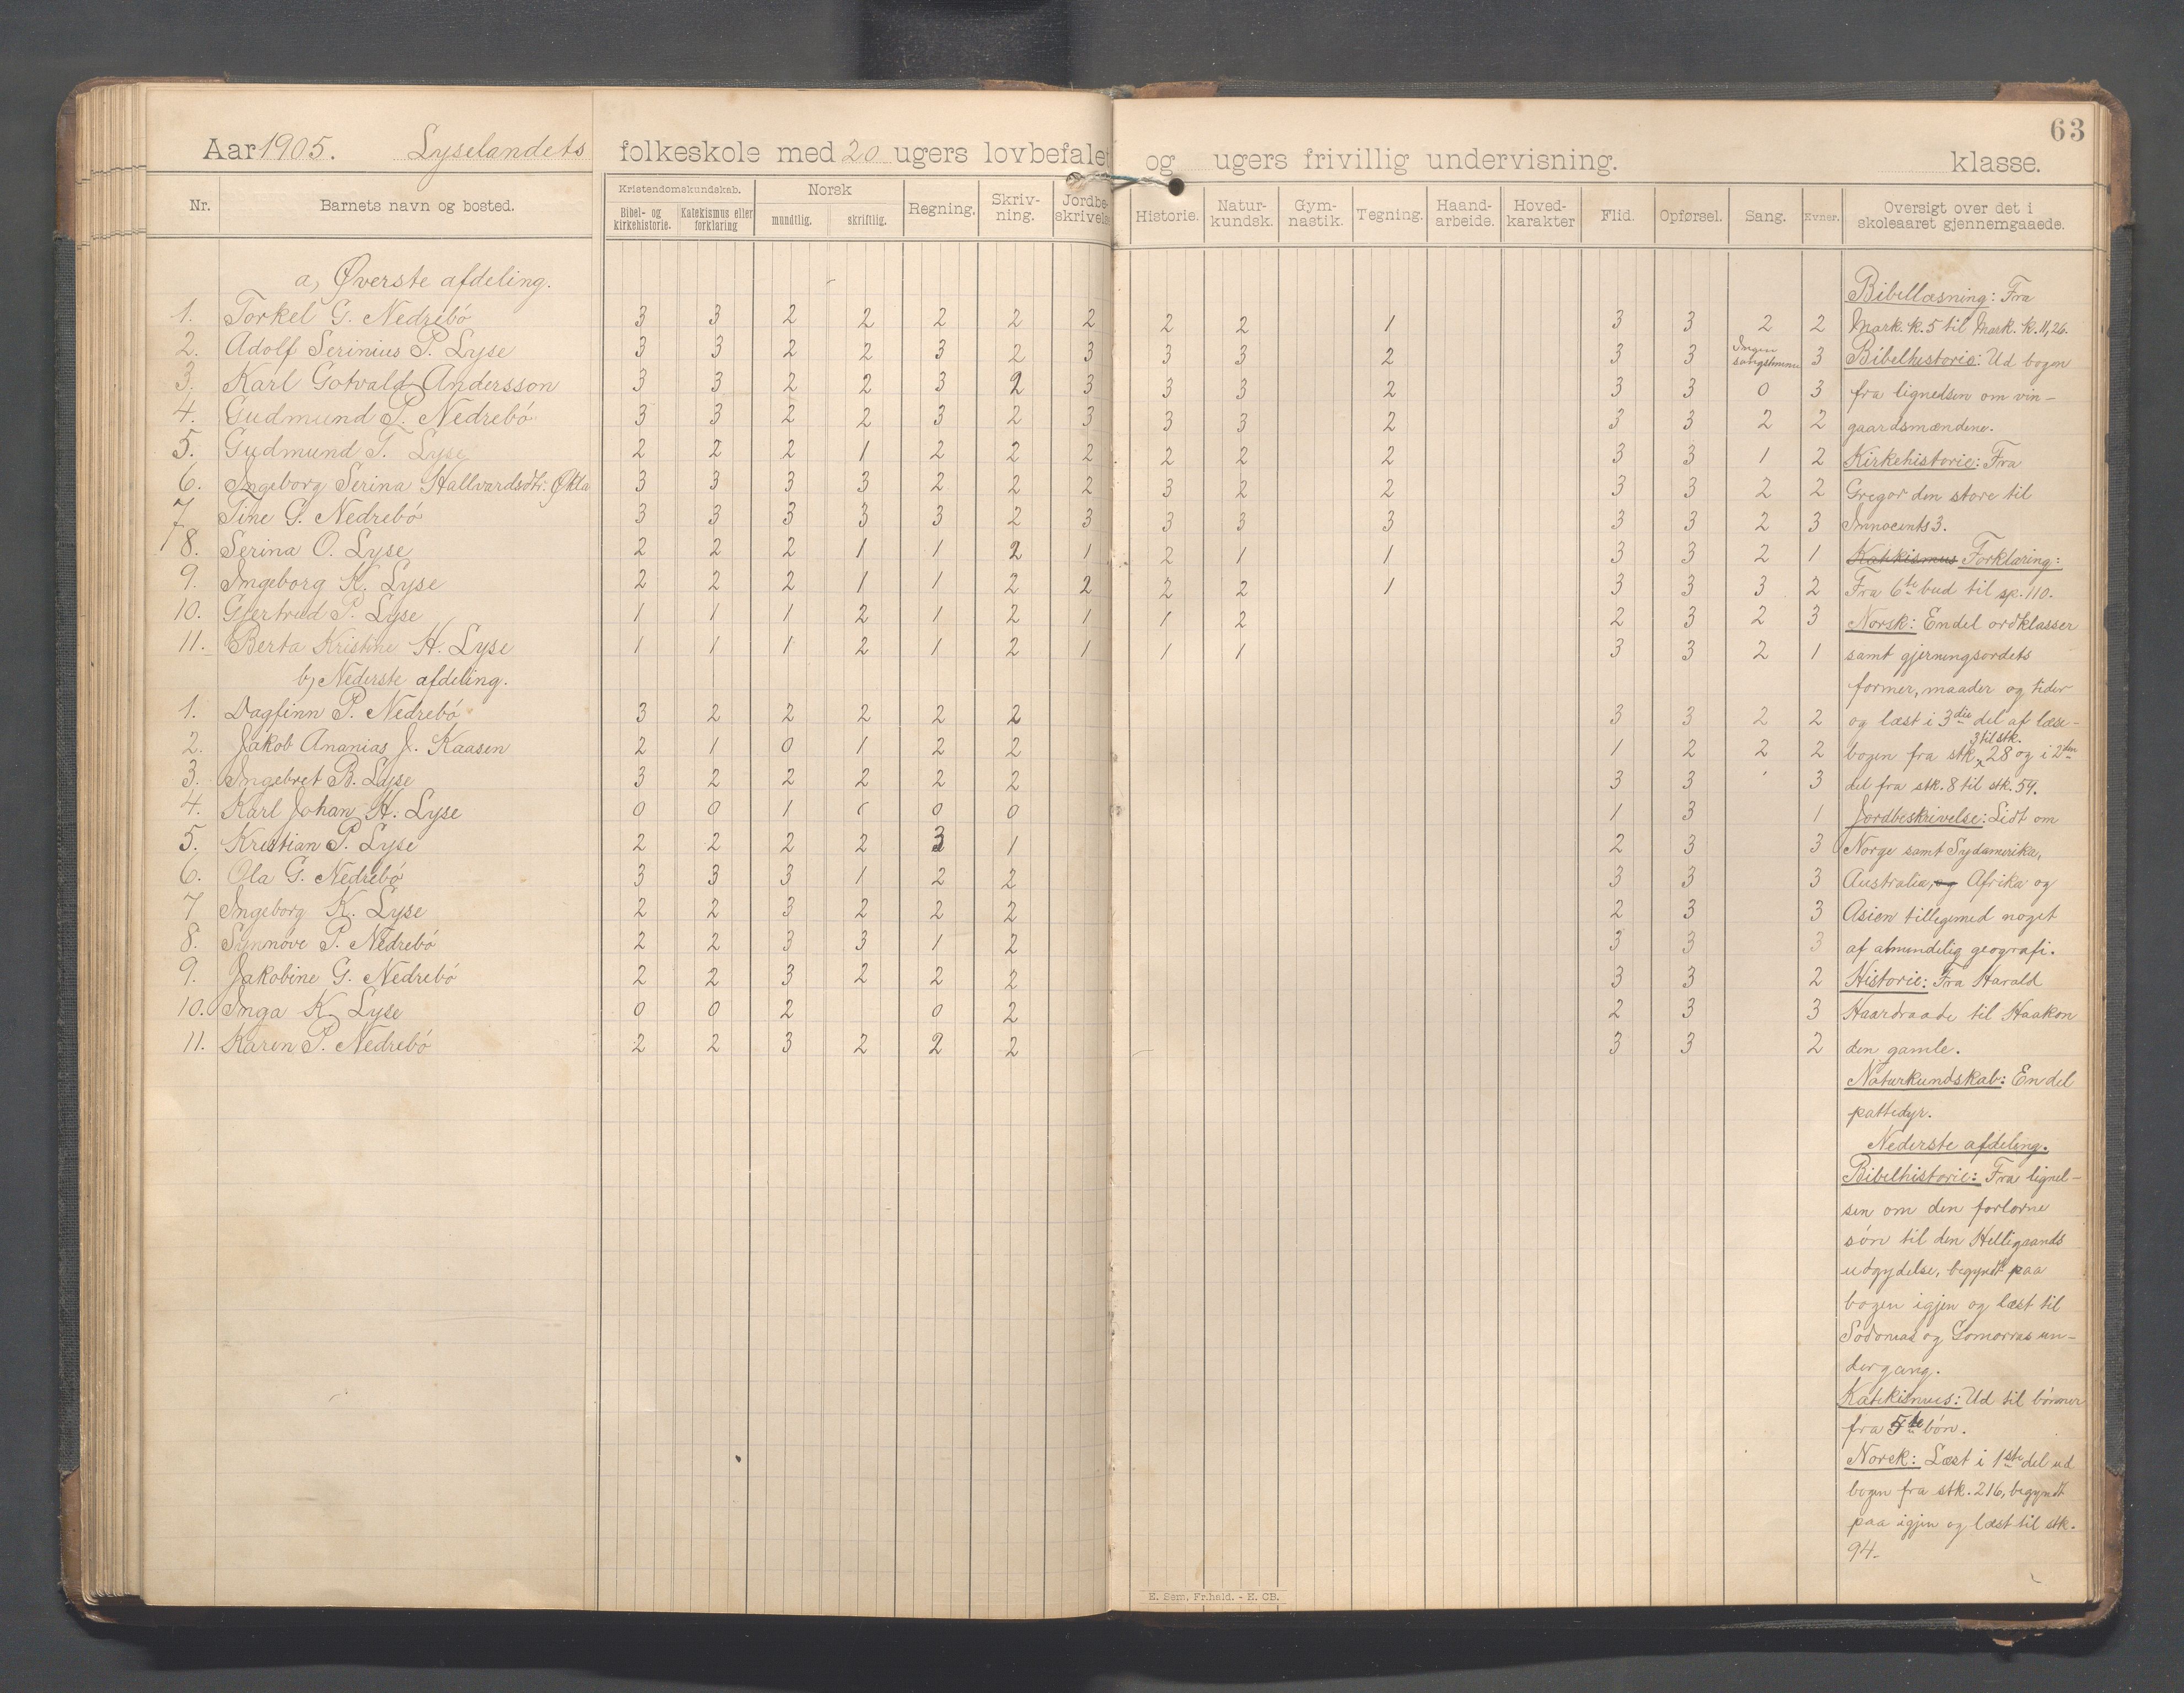 63
Aar 1905. Lyselandets folkeskole med 20 ugers lovbefalet og ugers frivillig undervisning. klasse.
Nr. Barnets navn og bosted. Kristendomskundskab. Bibel- og kirkehistorie. Katekismus eller forklaring Norsk mundtlig. skriftlig. Regning. Skriv-ning. Jordbe-skrivelse Historie. Natur-kundsk. Gym-nastik. Tegning. Haand-arbeide. Hoved-karakter Flid. Opførsel. Sang. Evner. Oversigt over det i skoleaaret gjennemgaaede.
a, Øverste afdeling.
1. Torkel G. Nedrebó 3 3 2 2 2 2 2 2 2 1 3 3 2 2
2. Adolf Serinius P. Lyse 3 3 2 2 3 2 3 3 3 2 3 3 Ingen sangstemme 3
3. Karl Gotvald Andersson 3 3 2 2 3 2 3 3 3 2 3 3 0 3
4. Gudmund P. Nedrebó 3 3 2 2 3 2 3 3 3 2 3 3 2 2
5. Gudmund T. Lyse 2 2 2 1 2 2 2 2 2 2 3 3 1 2
6. Ingeborg Serina Hallvardsdtr. Økla 3 3 3 3 2 2 2 3 2 2 3 3 2 2
7 Tine G. Nedrebó 3 3 3 3 3 2 3 3 3 3 3 3 2 3
8. Serina O. Lyse 2 2 2 1 1 2 1 2 1 1 3 3 2 1
9. Ingeborg K. Lyse 2 2 2 1 1 2 2 2 2 1 3 3 3 2
10. Gjertrud P. Lyse 1 1 1 2 1 2 1 1 2 2 3 2 3
11. Berta Kristine H. Lyse 1 1 1 2 1 2 1 1 1 3 3 2 1
b, Nederste afdeling.
1. Dagfinn P. Nedrebó 3 2 2 2 2 2 3 3 2 2
2. Jakob Ananias J. Kaasen 2 1 0 1 2 2 1 2 2 2
3. Ingebret B. Lyse 3 2 2 2 2 2 3 3 3
4. Karl Johan H. Lyse 0 0 1 0 0 1 3 1
5. Kristian P. Lyse 2 2 2 2 3 1 2 3 3
6. Ola G. Nedrebó 3 3 3 1 2 2 3 3 3
7 Ingeborg K. Lyse 2 2 3 2 2 2 2 3 3
8. Synnóve P. Nedrebó 2 2 3 3 1 2 3 3 3
9. Jakobine G. Nedrebó 2 2 3 2 2 2 3 3 2
10. Inga K. Lyse 0 0 2 0 2 2 3 3
11. Karen P. Nedrebó 2 2 3 2 2 2 3 3 2
Bibellæsning: Fra
Mark. k. 5 til Mark. k. 11,26.
Bibelhistorie: Ud bogen
fra lignelsen om vin-
gaardsmændene.
Kirkehistorie: Fra
Gregor den store til
Innocents 3.
Katekismus Forklaring:
Fra 6te bud til sp. 110.
Norsk: Endel ordklasser
samt gjerningsordets
former, maader og tider
og læst i 3die del af læse-
bogen fra stk. 3 til stk. 28 og i 2den
del fra stk. 8 til stk. 59.
Jordbeskrivelse: Lidt om
Norge samt Sydamerika,
Australia, og Afrika og
Asien tilligemed noget
af almindelig geografi.
Historie: Fra Harald
Haardraade til Haakon
den gamle.
Naturkundskab: Endel
pattedyr.
Nederste afdeling.
Bibelhistorie: Fra lignel-
sen om den forlorne
són til den Helligaands
udgydelse, begyndt paa
bogen igjen og læst til
Sodomas og Gomorras un-
dergang.
Katekismus: Ud til bónner
fra 5te bón.
Norsk: Læst i 1ste del ud
bogen fra stk. 216, begyndt
paa igjen og læst til stk.
94.
E. Sem, Fr.hald. - E. CB.